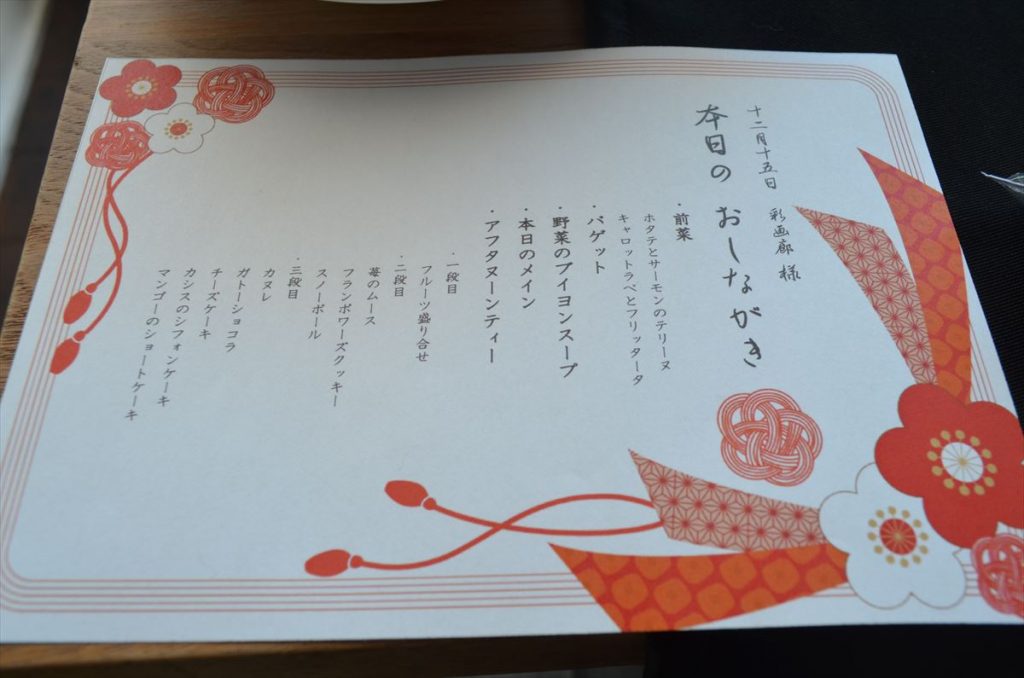 十二月十五日 彩画廊 様
本日の おしながき
・前菜
ホタテとサーモンのテリーヌ
キャロットラペとフリッタータ
・バゲット
・野菜のブイヨンスープ
・本日のメイン
・アフタヌーンティー
・一段目
フルーツ盛り合せ
・二段目
苺のムース
フランボワーズクッキー
スノーボール
・三段目
カヌレ
ガトーショコラ
チーズケーキ
カシスのシフォンケーキ
マンゴーのショートケーキ